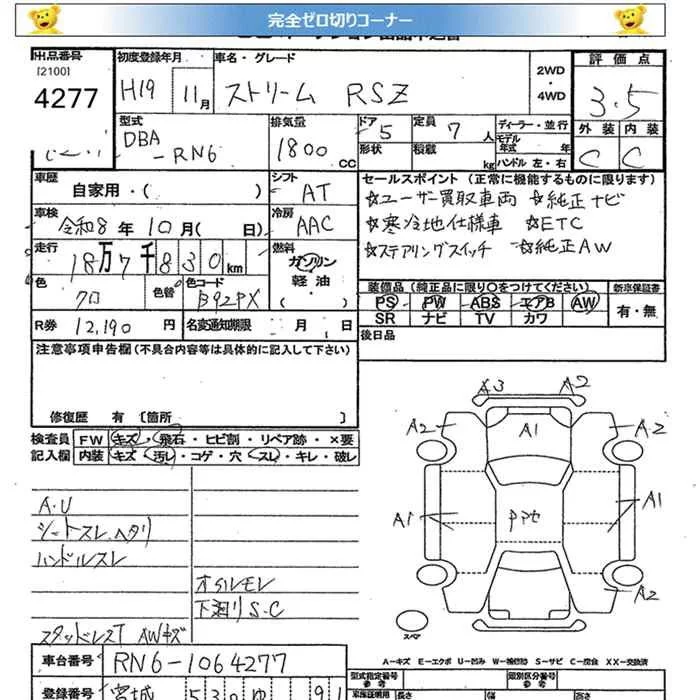 完全ゼロ切りコーナー
出品番号 初度登録年月 車名・グレード 評価点
[2100]
4277 H19 11月 ストリーム RSZ 2WD・4WD 3.5
型式 排気量 ドア 5 定員 7人 ディーラー・並行 外装 内装
DBA-RN6 1800cc 形状 積載 kg モデル年式 年 ハンドル 左・右 C C
車歴 シフト セールスポイント(正常に機能するものに限ります)
自家用・( ) AT ☆ユーザー買取車両 ☆純正ナビ
車検 令和8年10月( 日) 冷房 AAC ☆寒冷地仕様車 ☆ETC
走行 18万7千830km 燃料 ガソリン 軽油・( ) ☆ステアリングスイッチ ☆純正AW
色 クロ 色替 色コード B92PX 装備品(純正品に限り○をつけてください) 新車保証書
PS PW ABS エアB AW 有・無
R券 12,190円 名変通知期限 月 日 SR ナビ TV カワ
注意事項申告欄(不具合内容等は具体的に記入して下さい) 後日品
修復歴 有 [箇所 ]
検査員記入欄 FW キズ・飛石・ヒビ割・リペア跡・×要
内装 キズ・汚し・コゲ・穴・スレ・キレ・破レ
A.U
シートスレ、ヘタリ
ハンドルスレ
オイルモレ
下廻りS.C
スタッドレスT AWキズ
A3 A2
A2 A1 A2
A1 A1
A2
スペア
A-キズ E-エクボ U-凹み W-補修跡 S-サビ C-腐食 XX-交換済
車台番号 RN6-1064277 型式指定番号 類別区分番号
登録番号 宮城 530 ゆ 91 長さ 幅 高さ